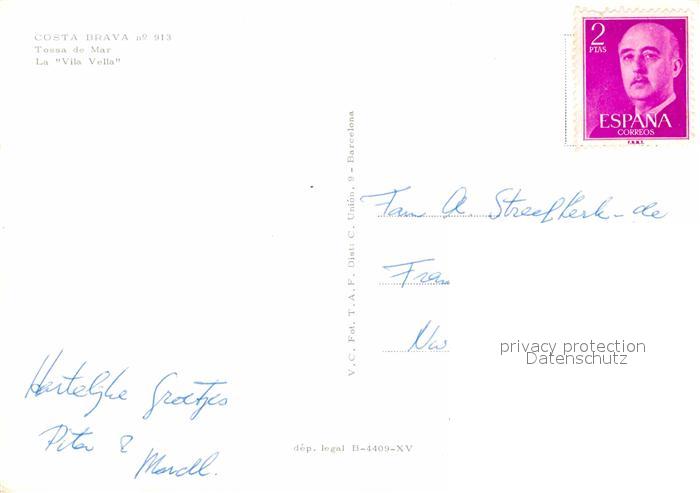 COSTA BRAVA nº 913
Tossa de Mar
La "Vila Vella"
2
PTAS
ESPAÑA
CORREOS
F.N.M.T.
V. C. Fot. T. A. F. Dist: C. Unión, 9 - Barcelona
Fam A. Streefkerk-de
Fran
Nw
privacy protection
Datenschutz
Hartelijke Groetjes
Piter &
dép. legal B-4409-XV